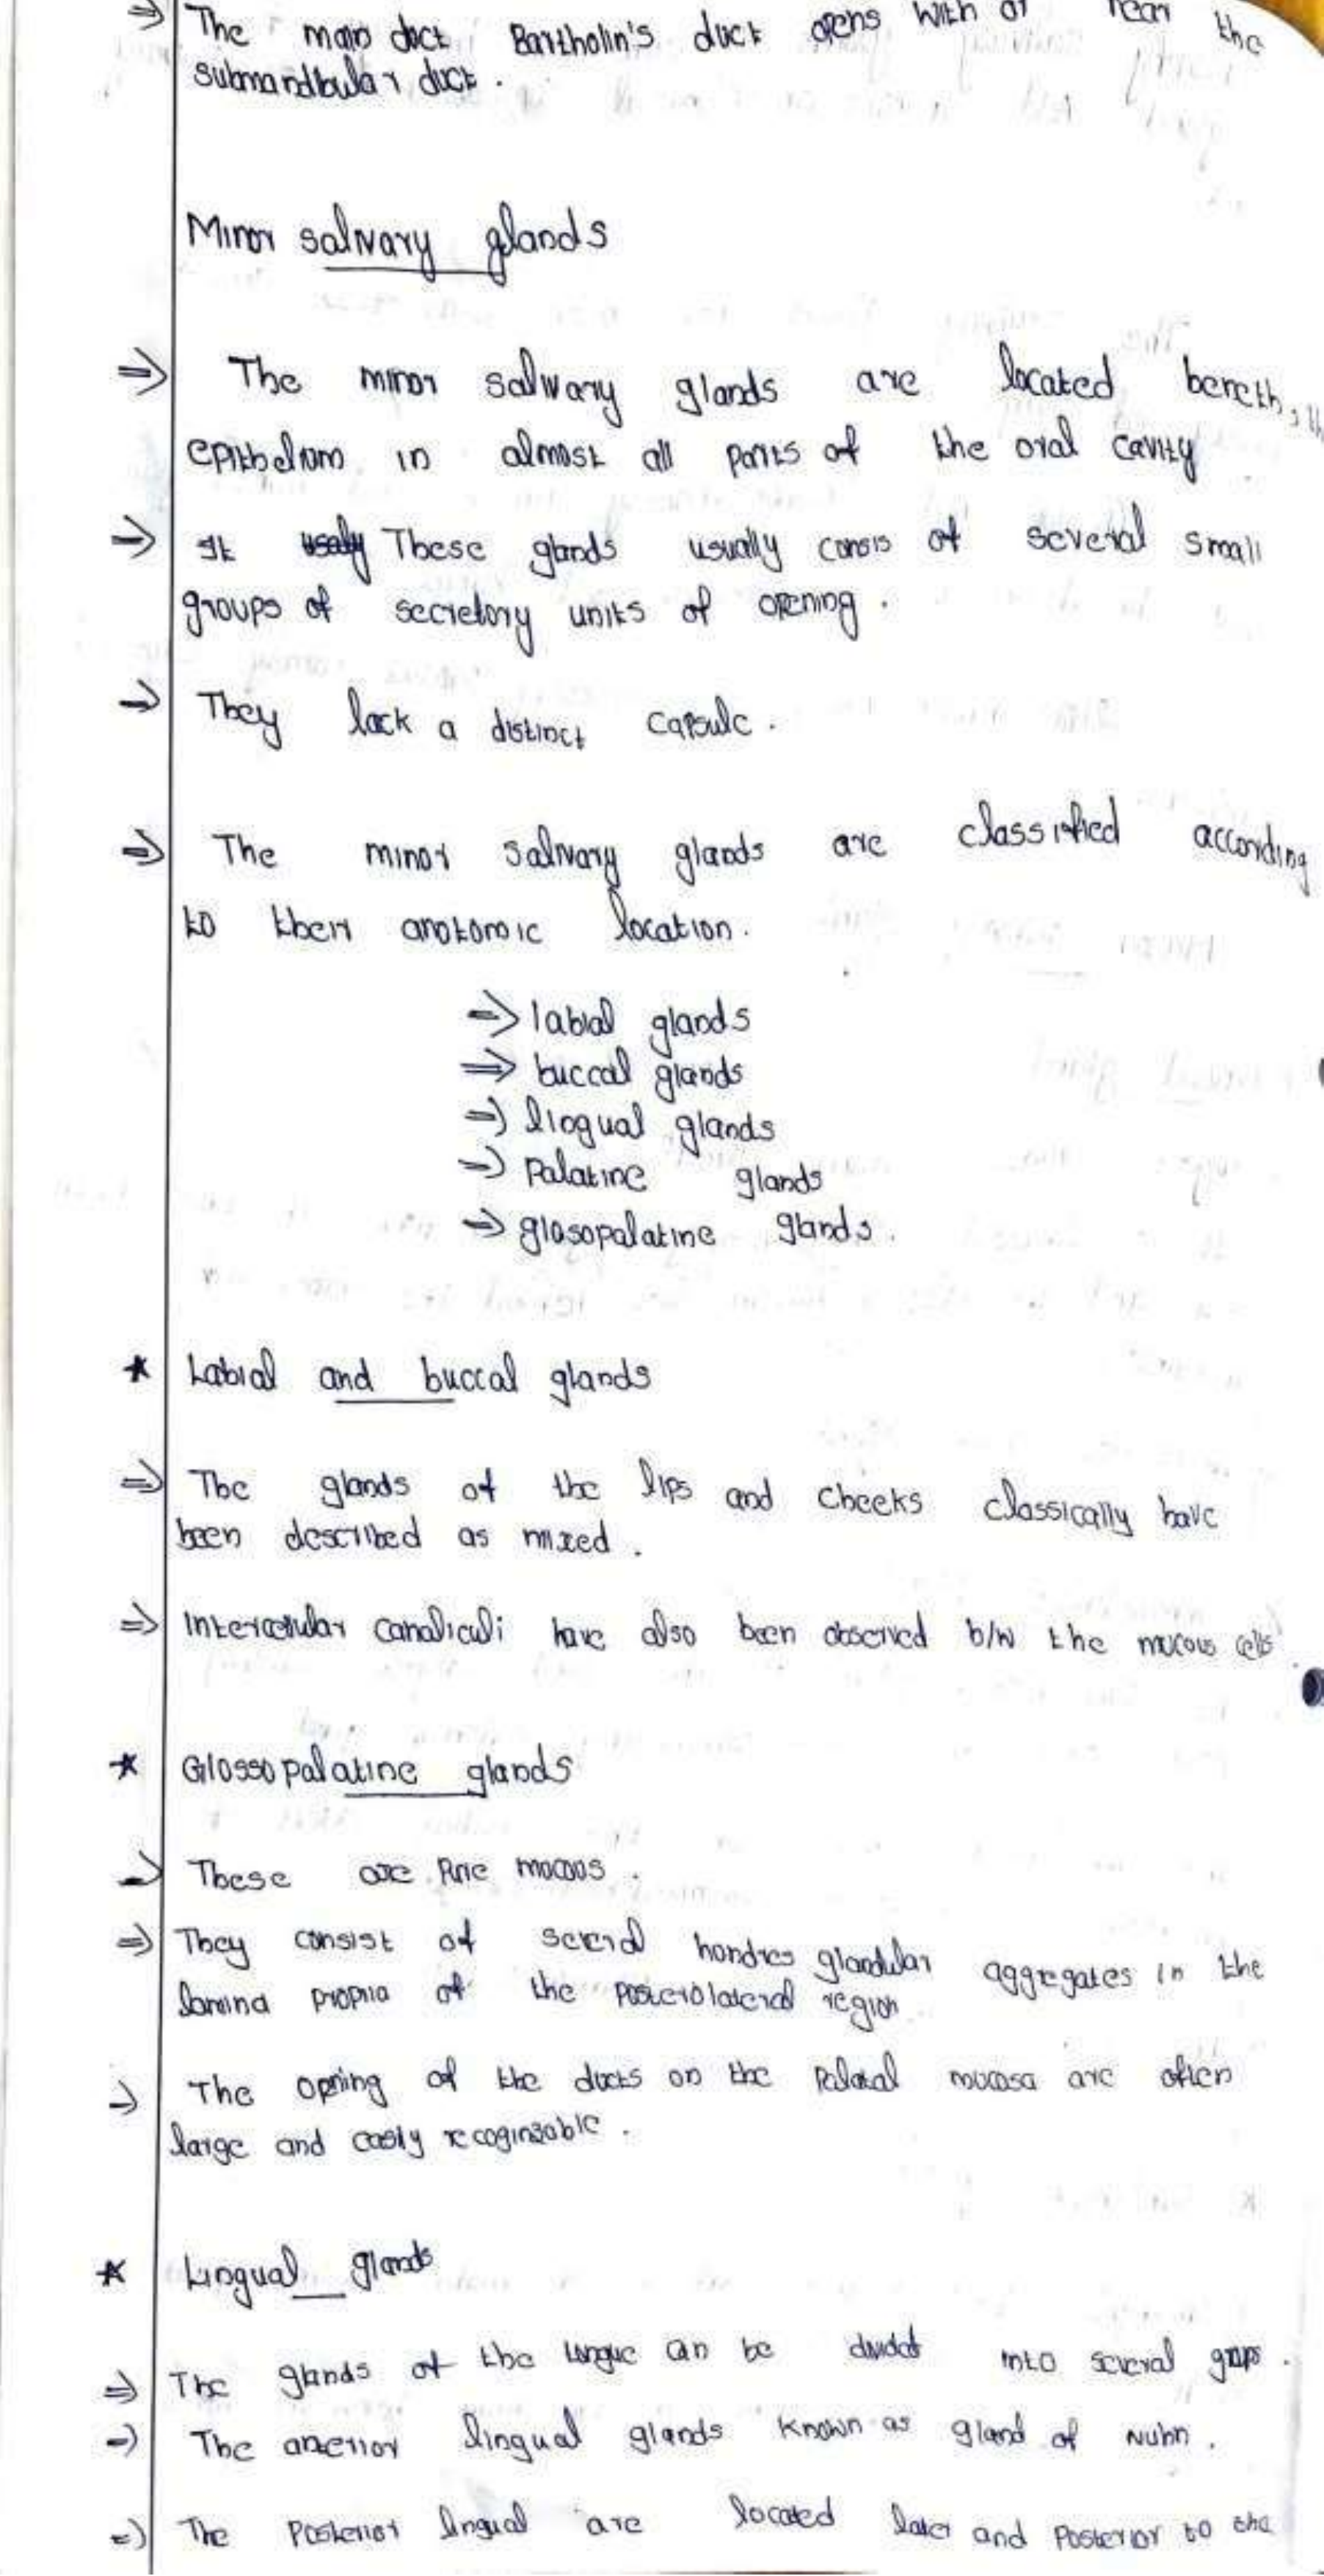 ⇒ The main duct Bartholin's duct opens with or near the
submandibular duct.
Minor salivary glands
⇒ The minor salivary glands are located beneth, th
epithelium in almost all parts of the oral cavity
⇒ It usealy These glands usually consis of several small
groups of secretory units of opening.
⇒ They lack a distinct capsule.
⇒ The minor salivary glands are classified according
to their anotomic location.
⇒ labial glands
⇒ buccal glands
⇒ lingual glands
⇒ Palatine glands
⇒ glosopalatine glands.
* Labial and buccal glands
⇒ The glands of the lips and cheeks classically have
been described as mixed.
⇒ Intercellular canaliculi have also been observed b/w the mucous cells.
* Glossopalatine glands
⇒ These are Pure mucous.
⇒ They consist of several glandular aggregates in the
lamina propria of the posterolateral region
⇒ The opening of the ducts on the Palatal mucosa are often
large and easly recoginzable.
* Lingual glands
⇒ The glands of the tongue can be divided into several groups.
⇒ The anterior lingual glands known as gland of Nuhn.
⇒ The Posterior lingual are located later and Posterior to the